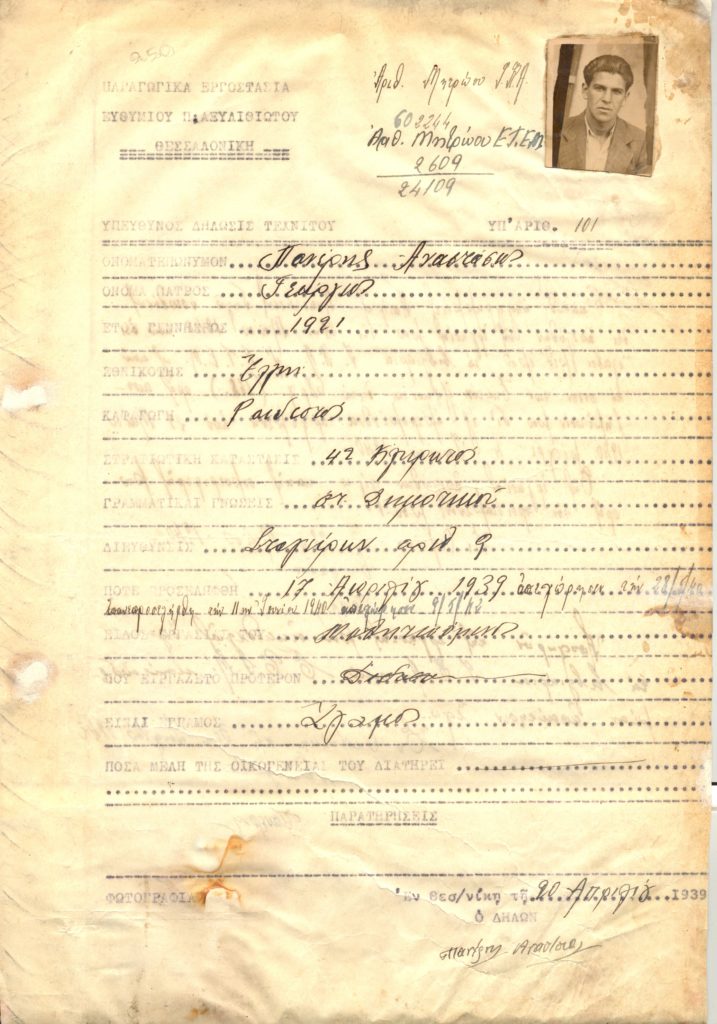 250
ΠΑΡΑΓΩΓΙΚΑ ΕΡΓΟΣΤΑΣΙΑ
ΕΥΘΥΜΙΟΥ Π. ΑΞΥΛΙΘΙΩΤΟΥ
ΘΕΣΣΑΛΟΝΙΚΗ
Ἀριθ. Μητρώου
602244
Ἀριθ. Μητρώου
2609
24109
ΥΠΕΥΘΥΝΟΣ ΔΗΛΩΣΙΣ ΤΕΧΝΙΤΟΥ ΥΠ'ΑΡΙΘ. 101
ΟΝΟΜΑΤΕΠΩΝΥΜΟΝ Αναστάσιος
ΟΝΟΜΑ ΠΑΤΡΟΣ Γεώργιος
ΕΤΟΣ ΓΕΝΝΗΣΕΩΣ 1921
ΕΘΝΙΚΟΤΗΣ Έλλην
ΚΑΤΑΓΩΓΗ Ραιδεστός
ΣΤΡΑΤΙΩΤΙΚΗ ΚΑΤΑΣΤΑΣΙΣ 42 Κληρωτός
ΓΡΑΜΜΑΤΙΚΑΙ ΓΝΩΣΕΙΣ στ. Δημοτικού
ΔΙΕΥΘΥΝΣΙΣ Σταγίρων αριθ 9
ΠΟΤΕ ΠΡΟΣΕΛΗΦΘΗ 17 Απριλίου 1939 ἀπεχώρησε τήν
ἐπαναπροσελήφθη την 11ην Ιουνίου 1940 ἀπεχώρησε
ΕΙΔΟΣ ΕΡΓΑΣΙΑΣ ΤΟΥ
ΠΟΥ ΕΙΡΓΑΖΕΤΟ ΠΡΟΤΕΡΟΝ
ΕΙΣΑΙ ΕΓΓΑΜΟΣ Άγαμος
ΠΟΣΑ ΜΕΛΗ ΤΗΣ ΟΙΚΟΓΕΝΕΙΑΣ ΤΟΥ ΔΙΑΤΗΡΕΙ
ΠΑΡΑΤΗΡΗΣΕΙΣ
ΦΩΤΟΓΡΑΦΙΑ Ἐν Θεσ/νίκη τῆ 20 Απριλίου 1939
ὁ ΔΗΛΩΝ